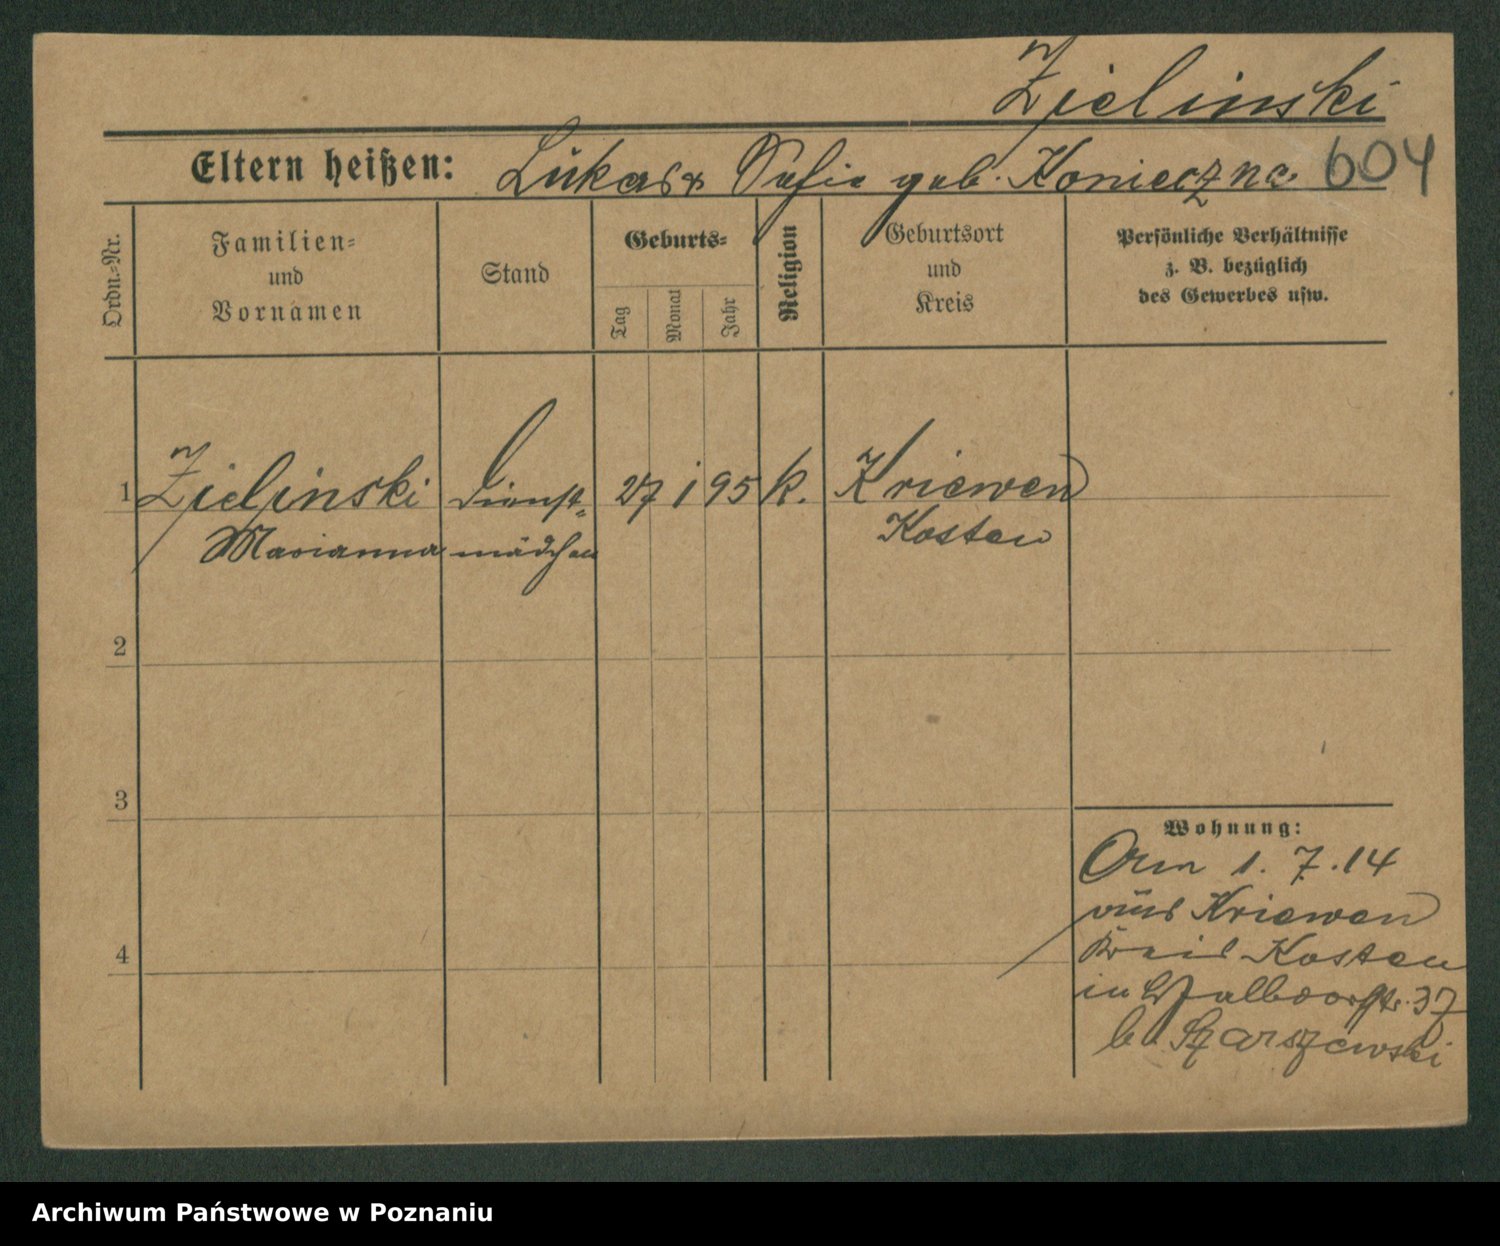 Zielinski
Eltern heißen: Lukas & Sofie geb. Konieczna 604
Ordn.=Nr.
Familien=
und
Vornamen
Stand
Geburts=
Tag
Monat
Jahr
Religion
Geburtsort
und
Kreis
Persönliche Verhältnisse
z. B. bezüglich
des Gewerbes usw.
1 Zielinski Dienst= 27 1 95 k. Kriewen
Marianna mädchen Kosten
2
3
4
Wohnung:
Am 1. 7. 14
aus Kriewen
Kreis Kosten
in 37
b.
Archiwum Państwowe w Poznaniu